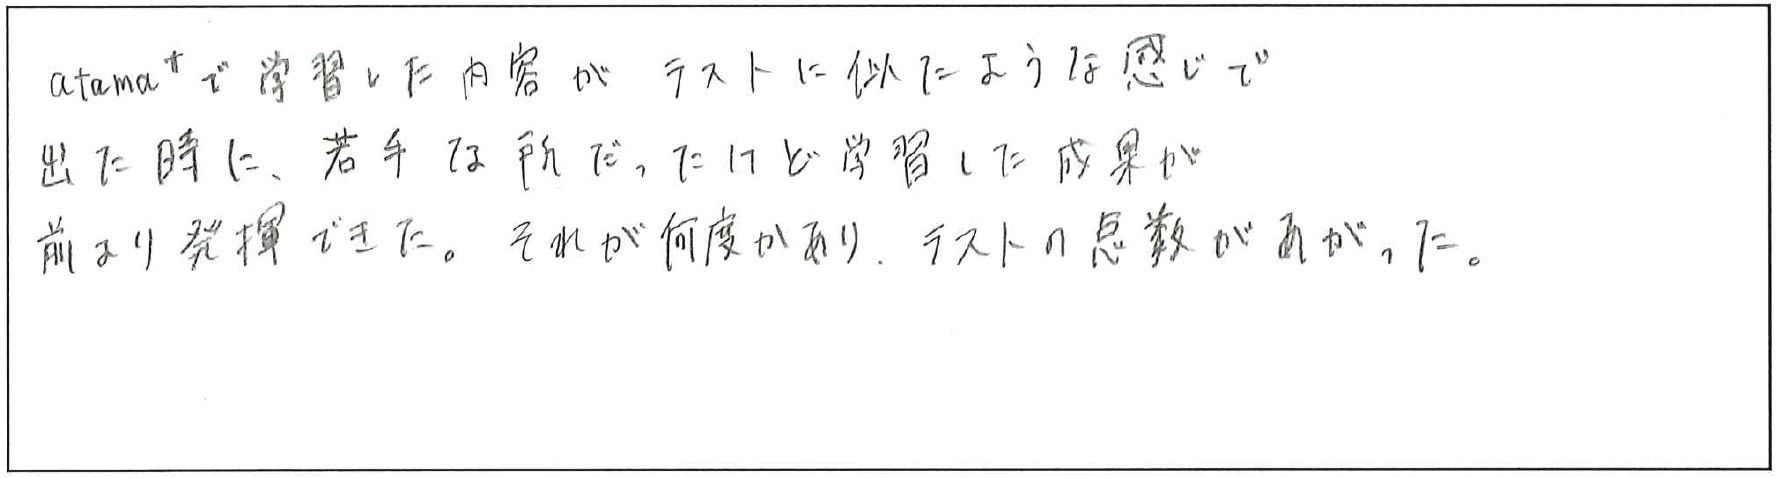 atama+で学習した内容が テストに似たような感じで
出た時に、若手な所だったけど学習した成果が
前より発揮できた。それが何度かあり、テストの点数があがった。